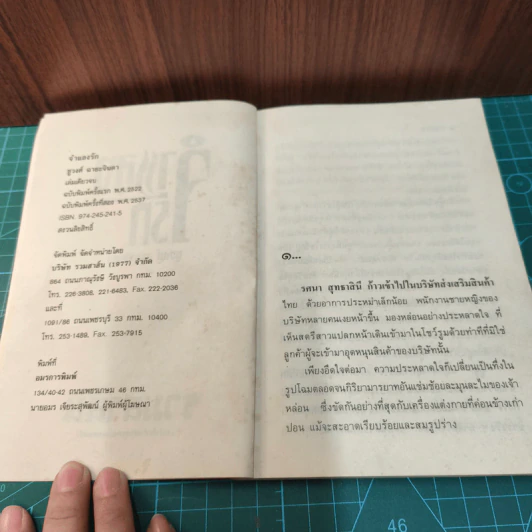 จำแลงรัก
ชูวงศ์ ฉายะจินดา
เล่มเดียวจบ
ฉบับพิมพ์ครั้งแรก พ.ศ. 2522
ฉบับพิมพ์ครั้งที่สอง พ.ศ. 2537
ISBN. 974-245-241-5
สงวนลิขสิทธิ์
จัดพิมพ์ จัดจำหน่ายโดย
บริษัท รวมสาส์น (1977) จำกัด
864 ถนนภาณุรังษี วังบูรพา กทม. 10200
โทร. 226-3808, 221-6483, Fax. 222-2036
และที่
1091/86 ถนนเพชรบุรี 33 กทม. 10400
โทร. 253-1489, Fax. 253-7915
พิมพ์ที่
อมรการพิมพ์
134/40-42 ถนนเพชรเกษม 46 กทม.
นายอมร เจียระสุพัฒน์ ผู้พิมพ์ผู้โฆษณา
๑...
รศนา สุทธาสินี ก้าวเข้าไปในบริษัทส่งเสริมสินค้า
ไทย ด้วยอาการประหม่าเล็กน้อย พนักงานชายหญิงของ
บริษัทหลายคนเงยหน้าขึ้น มองหล่อนอย่างประหลาดใจ ที่
เห็นสตรีสาวแปลกหน้าเดินเข้ามาในโชว์รูมด้วยท่าทีที่มิใช่
ลูกค้าผู้จะเข้ามาอุดหนุนสินค้าของบริษัทนั้น
เพียงอึดใจต่อมา ความประหลาดใจก็เปลี่ยนเป็นทึ่งใน
รูปโฉมตลอดจนกิริยามารยาทอันแช่มช้อยละมุนละไมของเจ้า
หล่อน ซึ่งขัดกันอย่างที่สุดกับเครื่องแต่งกายที่ค่อนข้างเก่า
ปอน แม้จะสะอาดเรียบร้อยและสมรูปร่าง
46